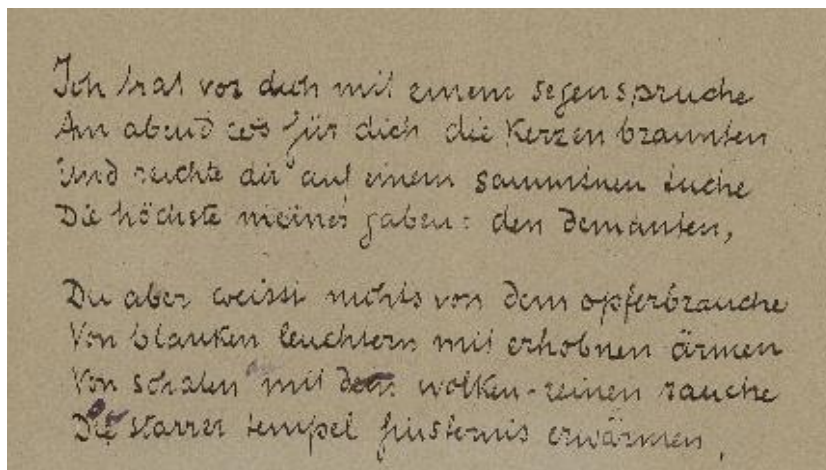 Ich trat vor dich mit einem segenspruche
Am abend wo für dich die Kerzen brannten
Und reichte dir auf einem sammtnen tuche
Die höchste meiner gaben: den demanten,
Du aber weisst nichts von dem opferbrauche
Von blanken leuchtern mit erhobnen ärmen
Von schalen mit wolken-reinen rauche
Die starrer tempel finsternis erwärmen,